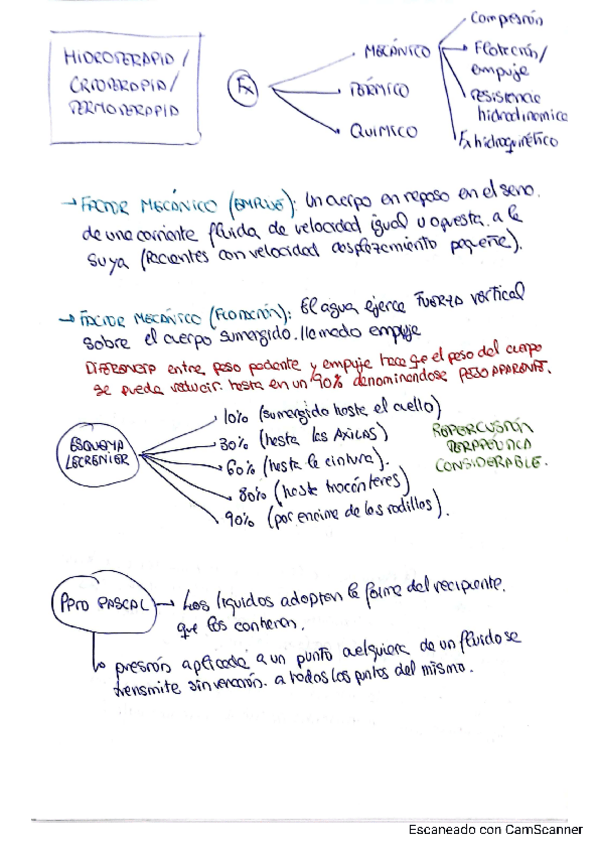 HIDROTERAPIA /
CRIOTERAPIA /
TERMOTERAPIA
Fx
MECÁNICO
TÉRMICO
QUIMICO
Compresión
Flotación /
empuje
resistencia
hidrodinamica
Fx hidroquinético
→ FACTOR MECÁNICO (EMPUJE): Un cuerpo en reposo en el seno.
de una corriente fluida de velocidad igual u opuesta a la
suya (Pacientes con velocidad desplazamiento pequeña).
→ FACTOR MECÁNICO (FLOTACIÓN): El agua ejerce FUERZA vertical
sobre el cuerpo sumergido. llamado empuje
DIFERENCIA entre peso paciente y empuje hace qe el peso del cuerpo
se pueda reducir. hasta en un 90% denominandose PESO APARENTE.
ESQUEMA
LECRENIER
10% (sumergido hasta el cuello)
30% (hasta las AXILAS)
60% (hasta la cintura).
80% (hasta trocánteres)
90% (por encima de las rodillas).
REPERCUSIÓN
TERAPEUTICA
CONSIDERABLE.
PPTO PASCAL
→ Los líquidos adoptan la forma del recipiente.
que los contienen.
presión aplicada a un punto cualquiera de un fluido se
transmite sin variación. a todos los puntos del mismo.
Escaneado con CamScanner